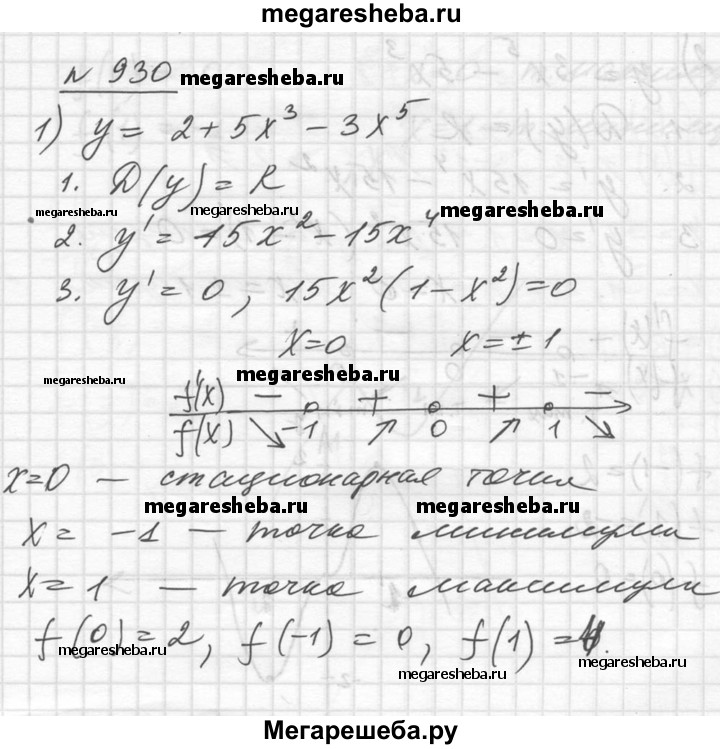 megaresheba.ru
№ 930 megaresheba.ru
1) y = 2 + 5x³ − 3x⁵
1. D(y) = R
megaresheba.ru megaresheba.ru megaresheba.ru
2. y' = 15x² − 15x⁴
3. y' = 0, 15x²(1 − x²) = 0
x=0 x = ± 1
megaresheba.ru megaresheba.ru
f'(x) − + + −
f(x) ↘ −1 ↗ 0 ↗ 1 ↘
x=0 — стационарная точка
megaresheba.ru megaresheba.ru
x = −1 — точка минимума
x = 1 — точка максимума
f(0) = 2, f(−1) = 0, f(1) = 4.
megaresheba.ru megaresheba.ru megaresheba.ru
Мегарешеба.ру